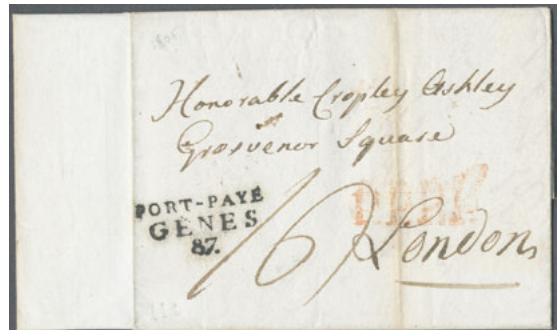 Honorable Cropley Ashley
Grosvenor Square
PORT-PAYÉ
GÊNES
87.
1/6
London